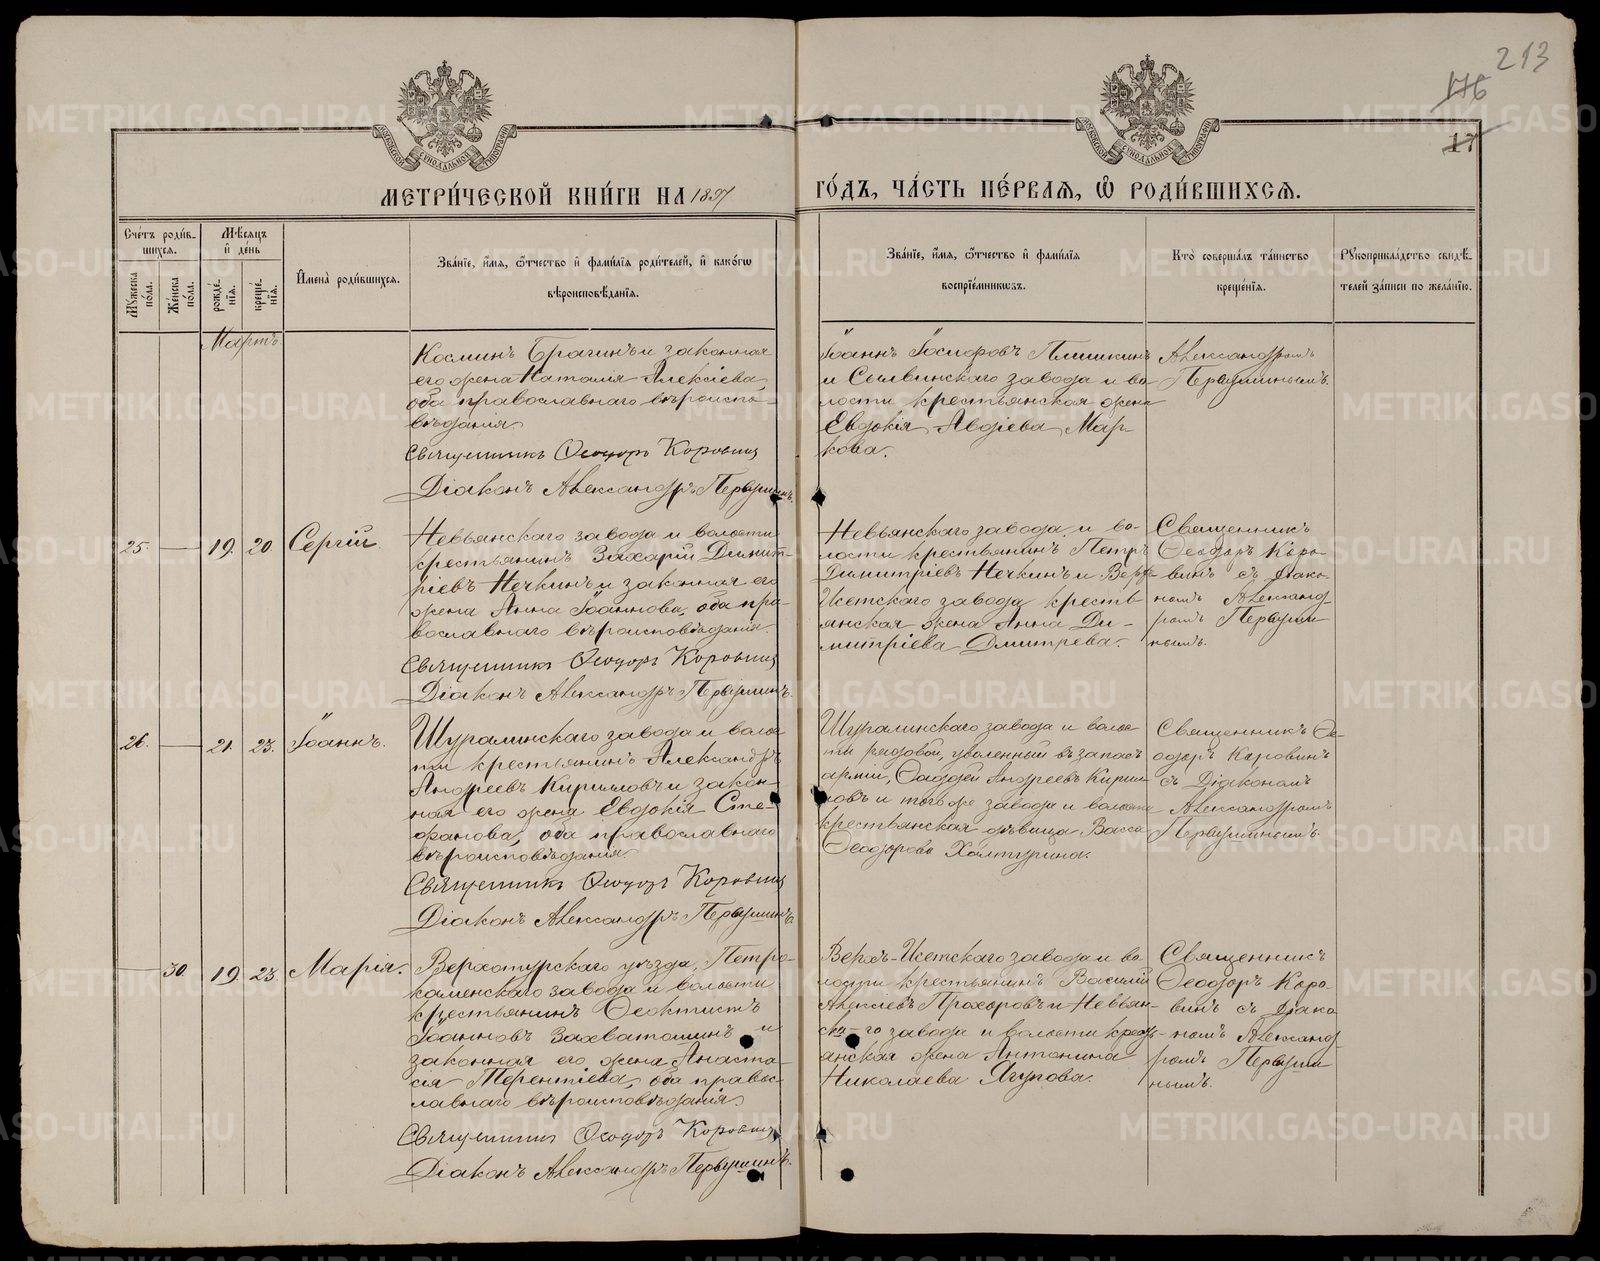 213
176
17
МЕТРИ́ЧЕСКОЙ КНИ́ГИ НА 1897
ГО́ДЪ, ЧА́СТЬ ПЕ́РВАЯ, Ѽ РОДИ́ВШИХСѦ.
Сче́тъ роди́в-
шихсѧ.
Мꙋ́жеска по́ла.
Же́нска по́ла.
Мѣ́сяцъ и҆ де́нь
рожде́-нїѧ.
креще́-нїѧ.
И҆мена̀ роди́вшихсѧ.
Зва́нїе, и҆́мѧ, ѻ҆́тчество и҆ фами́лїѧ роди́телей, и҆ како́гѡ
вѣроисповѣ́данїѧ.
Зва́нїе, и҆́мѧ, ѻ҆́тчество и҆ фами́лїѧ
воспрїе́мникѡвъ.
Кто̀ соверша́лъ та́инство
креще́нїѧ.
Рꙋкоприкла́дство свидѣ́-
телей за́писи по жела́нїю.
Мартъ
Космин Брагинъ и законная
его жена Наталія Алексіева,
оба православнаго вѣроиспо-
вѣданія.
Священникъ Ѳеодоръ Коровинъ
Діаконъ Александръ Первушинъ.
Іоаннъ Іосифовъ Плишкинъ
и Сылвинскаго завода и во-
лости крестьянская жена
Евдокія Авдіева Мар-
кова.
Александромъ
Первушинымъ.
25. — 19. 20 Сергій.
Невьянскаго завода и волости
крестьянинъ Захарій Димит-
ріевъ Нечкинъ и законная его
жена Анна Іоаннова, оба пра-
вославнаго вѣроисповѣданія.
Священникъ Ѳеодоръ Коровинъ
Діаконъ Александръ Первушинъ.
Невьянскаго завода и во-
лости крестьянинъ Петръ
Димитріевъ Нечкинъ и Верх-
Исетскаго завода кресть-
янская жена Анна Ди-
митріева Дмитрева.
Священникъ
Ѳеодоръ Коро-
винъ съ діако-
номъ Александ-
ромъ Первуши-
нымъ.
26. — 21. 23. Іоаннъ.
Шуралинскаго завода и волос-
ти крестьянинъ Александръ
Андреевъ Кирилловъ и закон-
ная его жена Евдокія Сте-
фанова, оба православнаго
вѣроисповѣданія.
Священникъ Ѳеодоръ Коровинъ
Діаконъ Александръ Первушинъ.
Шуралинскаго завода и волос-
ти рядовой, уволенный въ запасъ
арміи, Ѳаддей Андреевъ Кирил-
ловъ и того же завода и волости
крестьянская дѣвица Васса
Ѳеодорова Халтурина.
Священникъ Ѳе-
одоръ Коровинъ
съ Діакономъ
Александромъ
Первушинымъ.
— 30. 19 23. Марія.
Верхотурскаго уѣзда, Петро-
каменскаго завода и волости
крестьянинъ Ѳеоктистъ
Іоанновъ Захватошинъ и
законная его жена Анаста-
сія Терентіева, оба правос-
лавнаго вѣроисповѣданія.
Священникъ Ѳеодоръ Коровинъ
Діаконъ Александръ Первушинъ.
Верхъ-Исетскаго завода и во-
лости крестьянинъ Василій
Алексіевъ Прохоровъ и Невьян-
скаго завода и волости кресть-
янская жена Антонина
Николаева Ягупова.
Священникъ
Ѳеодоръ Коро-
винъ съ діако-
номъ Александ-
ромъ Первуши-
нымъ.
METRIKI.GASO-URAL.RU